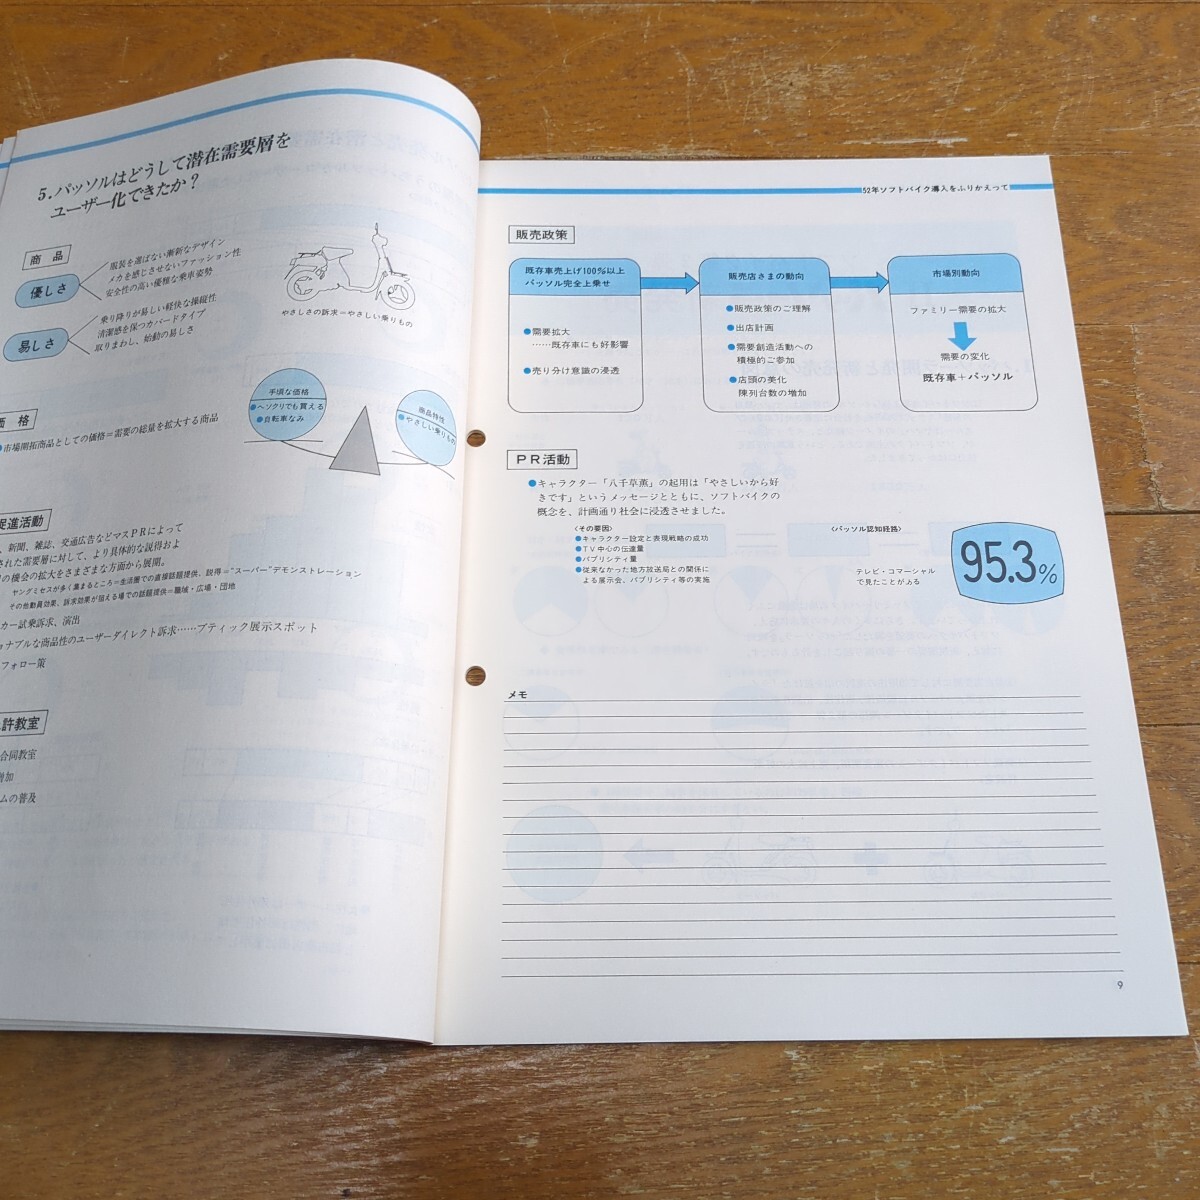 5.パッソルはどうして潜在需要層を
ユーザー化できたか?
商品
優しさ
服装を選ばない斬新なデザイン
メカを感じさせないファッション性
安全性の高い優雅な乗車姿勢
易しさ
乗り降りが易しい軽快な操縦性
清潔感を保つカバードタイプ
取りまわし、始動の易しさ
やさしさの訴求=やさしい乗りもの
価格
●市場開拓商品としての価格=需要の総量を拡大する商品
手頃な価格
●ヘソクリでも買える
●自転車なみ
商品特性
●やさしい乗りもの
促進活動
、新聞、雑誌、交通広告などマスPRによって
された需要層に対して、より具体的な説得およ
の機会の拡大をさまざまな方面から展開。
ヤングミセスが多く集まるところ=生活圏での直接話題提供、説得="スーパー"デモンストレーション
その他動員効果、訴求効果が狙える場での話題提供=職域・広場・団地
カー試乗訴求、演出
ョナブルな商品性のユーザーダイレクト訴求……ブティック展示スポット
フォロー策
許教室
合同教室
増加
ムの普及
52年ソフトバイク導入をふりかえって
販売政策
既存車売上げ100%以上
パッソル完全上乗せ
●需要拡大
……既存車にも好影響
●売り分け意識の浸透
販売店さまの動向
●販売政策のご理解
●出店計画
●需要創造活動への
積極的ご参加
●店頭の美化
陳列台数の増加
市場別動向
ファミリー需要の拡大
需要の変化
既存車+パッソル
PR活動
●キャラクター「八千草薫」の起用は「やさしいから好
きです」というメッセージとともに、ソフトバイクの
概念を、計画通り社会に浸透させました。
〈その要因〉
●キャラクター設定と表現戦略の成功
●TV中心の伝達量
●パブリシティ量
●従来なかった地方放送局との関係に
よる展示会、パブリシティ等の実施
〈パッソル認知経路〉
テレビ・コマーシャル
で見たことがある
95.3%
メモ
9